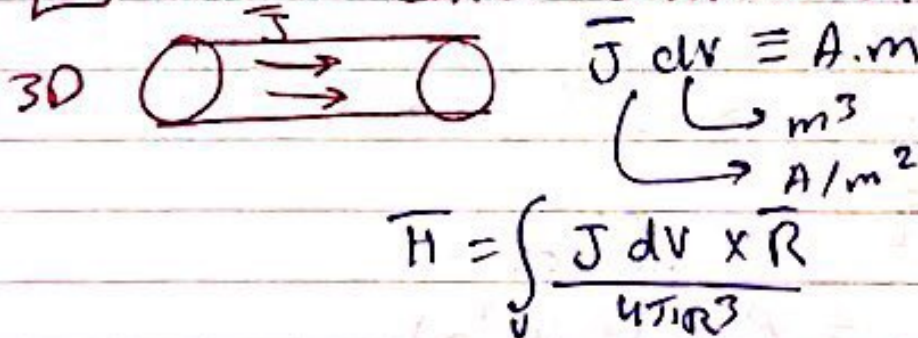 J̅
3D
J̅ dv ≡ A.m
m³
A/m²
H̅ = ∫ᵥ J dV × R̅ / 4πR³